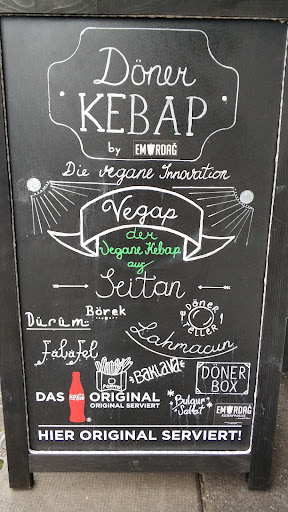 Döner
KEBAP
by EMIRDAĞ
Die vegane Innovation
Vegap
der
Vegane Kebap
aus
Seitan
Börek
Dürüm
DÖNER
TELLER
Lahmacun
Falafel
POMMES
BAKLAVA
DÖNER
BOX
DAS Coca-Cola ORIGINAL
ORIGINAL SERVIERT
Bulgur
Salat
EMIRDAĞ
HIER ORIGINAL SERVIERT!